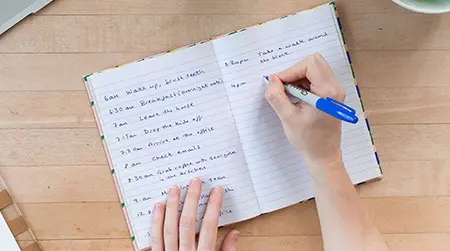 6am Wake up, brush teeth
6:30 am Breakfast (overnight oats)
7am Leave the house
7:15am Drop the kids off
7:30am Arrive at the office
8 am Check emails
8:30am Grab coffee with Georgina
in the kitchen
9 am
12
3:30pm Take a walk around
the block
4pm